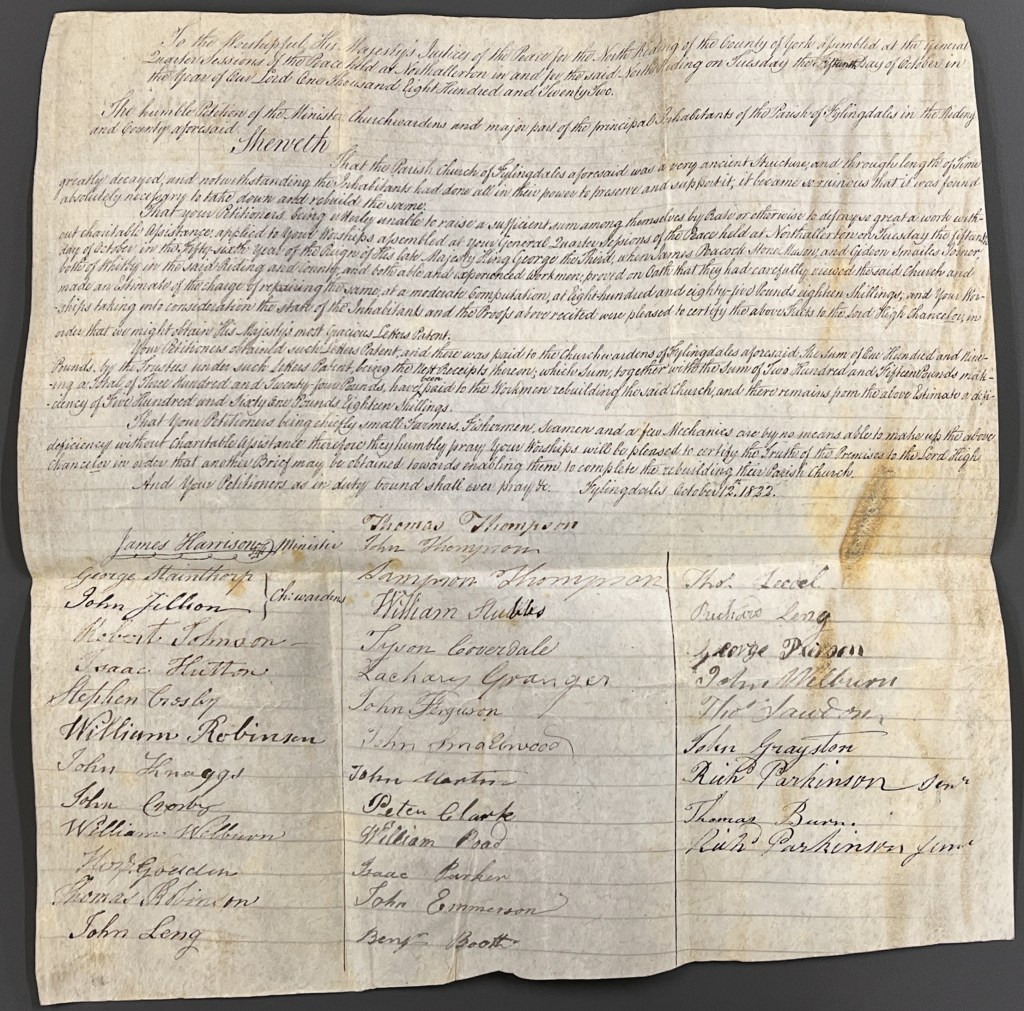 To the Worshipful His Majesty's Justices of the Peace for the North Riding of the County of York assembled at the General
Quarter Sessions of the Peace held at Northallerton in and for the said North Riding on Tuesday the fifteenth day of October in
the Year of Our Lord One Thousand Eight Hundred and Twenty Two.
The humble Petition of the Minister Churchwardens and major part of the principal Inhabitants of the Parish of Fylingdales in the Riding
and County aforesaid.
Sheweth
That the Parish Church of Fylingdales aforesaid was a very ancient Structure, and through length of Time
greatly decayed, and notwithstanding the Inhabitants had done all in their power to preserve and support it; it became so ruinous that it was found
absolutely necessary to take down and rebuild the same.
That your Petitioners being utterly unable to raise a sufficient sum among themselves by Rate or otherwise to defray so great a work with-
out charitable Assistance, applied to Your Worships assembled at your General Quarter Sessions of the Peace held at Northallerton on Tuesday the fifteenth
day of October in the Fifty-sixth Year of the Reign of His late Majesty King George the Third, when James Peacock Stone Mason, and Gideon Smailes Joiner,
both of Whitby in the said Riding and County, and both able and experienced Workmen, proved on Oath that they had carefully viewed the said Church and
made an Estimate of the charge of repairing the same, at a moderate Computation, at Eight hundred and eighty-five Pounds eighteen Shillings, and Your Wor-
-ships taking into consideration the state of the Inhabitants and the Proofs above recited were pleased to certify the above Facts to the Lord High Chancelor, in
order that we might obtain His Majesty's most Gracious Letters Patent.
Your Petitioners obtained such Letters Patent, and there was paid to the Churchwardens of Fylingdales aforesaid, the Sum of One Hundred and Nine
Pounds, by the Trustees under such Letters Patent, being the Nett Receipts thereon; which Sum, together with the Sum of Two Hundred and Fifteen Pounds mak-
-ing a Total of Three Hundred and Twenty four Pounds, have been paid to the Workmen rebuilding the said Church, and there remains from the above Estimate a defi-
-ciency of Five Hundred and Sixty One Pounds Eighteen Shillings.
That Your Petitioners being chiefly small Farmers, Fishermen, Seamen and a few Mechanics are by no means able to make up the above
deficiency without Charitable Assistance therefore they humbly pray Your Worships will be pleased to certify the Truth of the Premises to the Lord High
Chancelor in order that another Brief may be obtained towards enabling them to complete the rebuilding their Parish Church.
And Your Petitioners as in duty bound shall ever pray &c. Fylingdales October 12th. 1822.
James Harrison Minister
George Stainthorp
John Jillson
Ch: wardens
Robert Johnson
Isaac Hutton
Stephen Crosby
William Robinson
John Knaggs
John Crosby
William Welburn
Gouden
Thomas Robinson
John Leng
Thomas Thompson
John Thompson
Sampson Thompson
William Stubbs
Tyson Coverdale
Zachary Granger
John Ferguson
John Smallwood
John Martin
Peter Clark
William Poad
Isaac Parker
John Emmerson
Benjn Booth
Thos.
Richard Leng
George Pierson
John Welburn
Thos Sawdon
John Grayston
Richd Parkinson Senr
Thomas Burn.
Richd Parkinson Junr